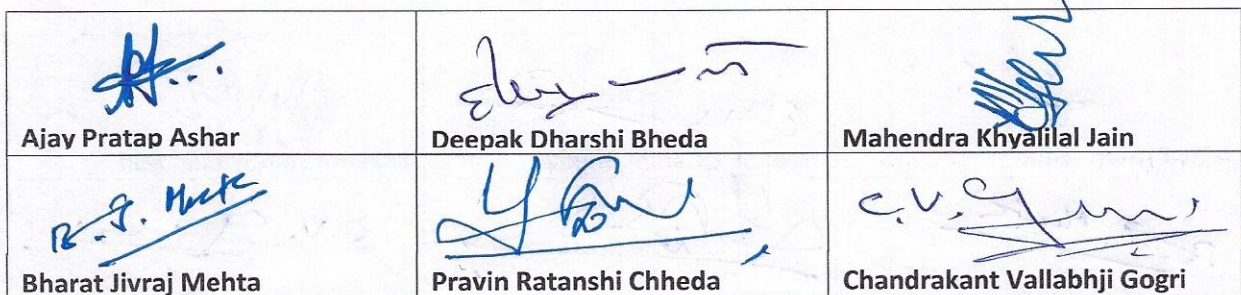 Ajay Pratap Ashar
Deepak Dharshi Bheda
Mahendra Khyalilal Jain
B. J. Mehta
C. V.
Bharat Jivraj Mehta
Pravin Ratanshi Chheda
Chandrakant Vallabhji Gogri